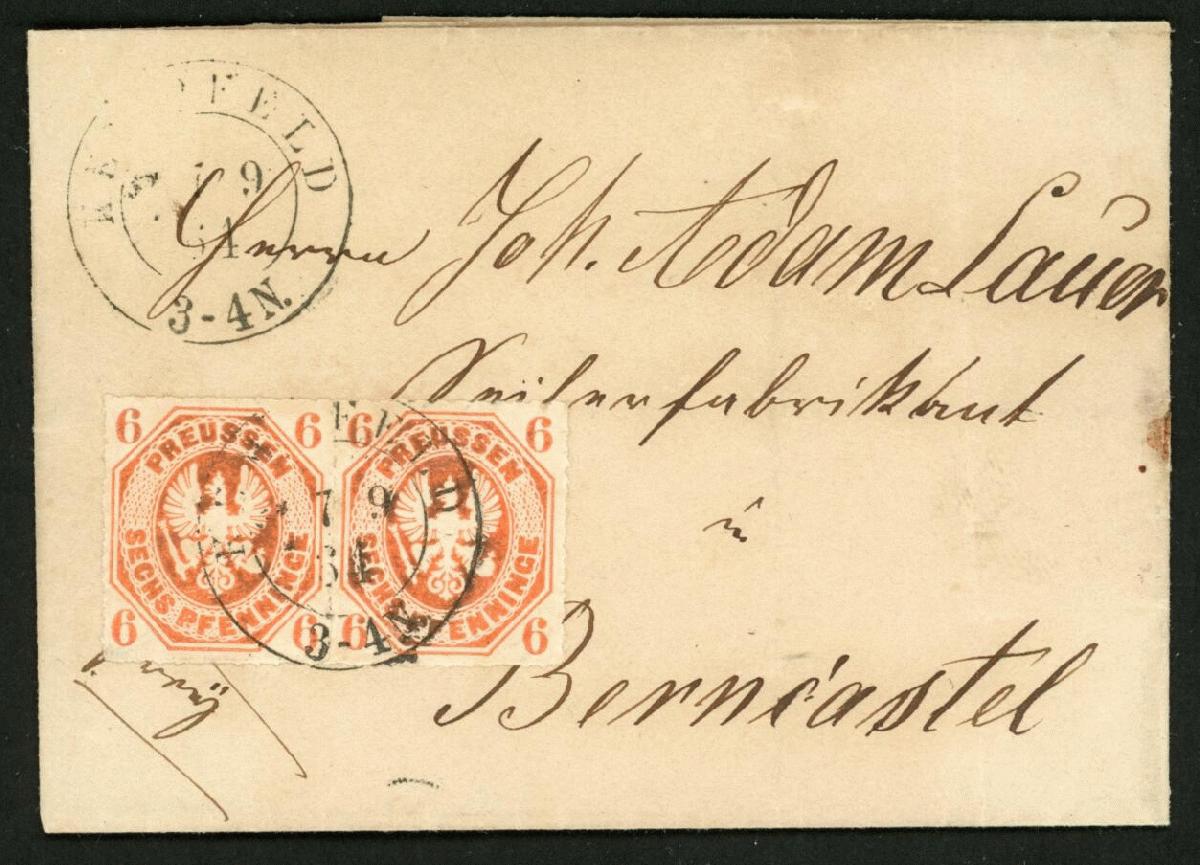 FELD
7 9
3-4N.
Herrn Joh. Adam Lauer
Seilerfabrikant
in
Berncastel
6 6
PREUSSEN
SECHS PFENNINGE
6 6
6 6
PREUSSEN
SECHS PFENNINGE
6 6
7 9
64
3-4N.